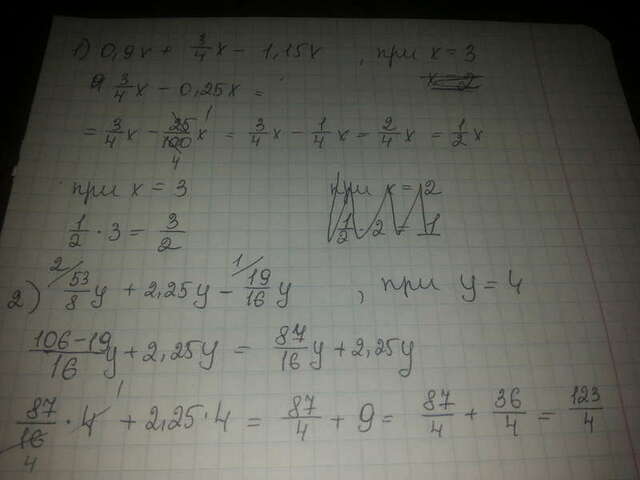 1) 0,9x + 3/4 x - 1,15x , при x = 3
3/4 x - 0,25x =
= 3/4 x - 25/100 x = 3/4 x - 1/4 x = 2/4 x = 1/2 x
при x = 3 при x = 2
1/2 · 3 = 3/2 1/2 · 2 = 1
2) 53/8 y + 2,25y - 19/16 y , при y = 4
106-19/16 y + 2,25y = 87/16 y + 2,25y
87/16 · 4 + 2,25·4 = 87/4 + 9 = 87/4 + 36/4 = 123/4